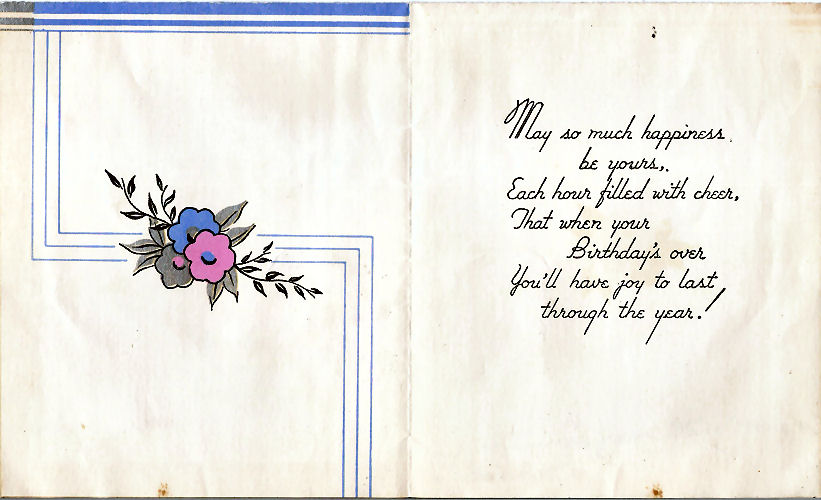 May so much happiness
be yours,
Each hour filled with cheer,
That when your
Birthday's over
You'll have joy to last
through the year.!